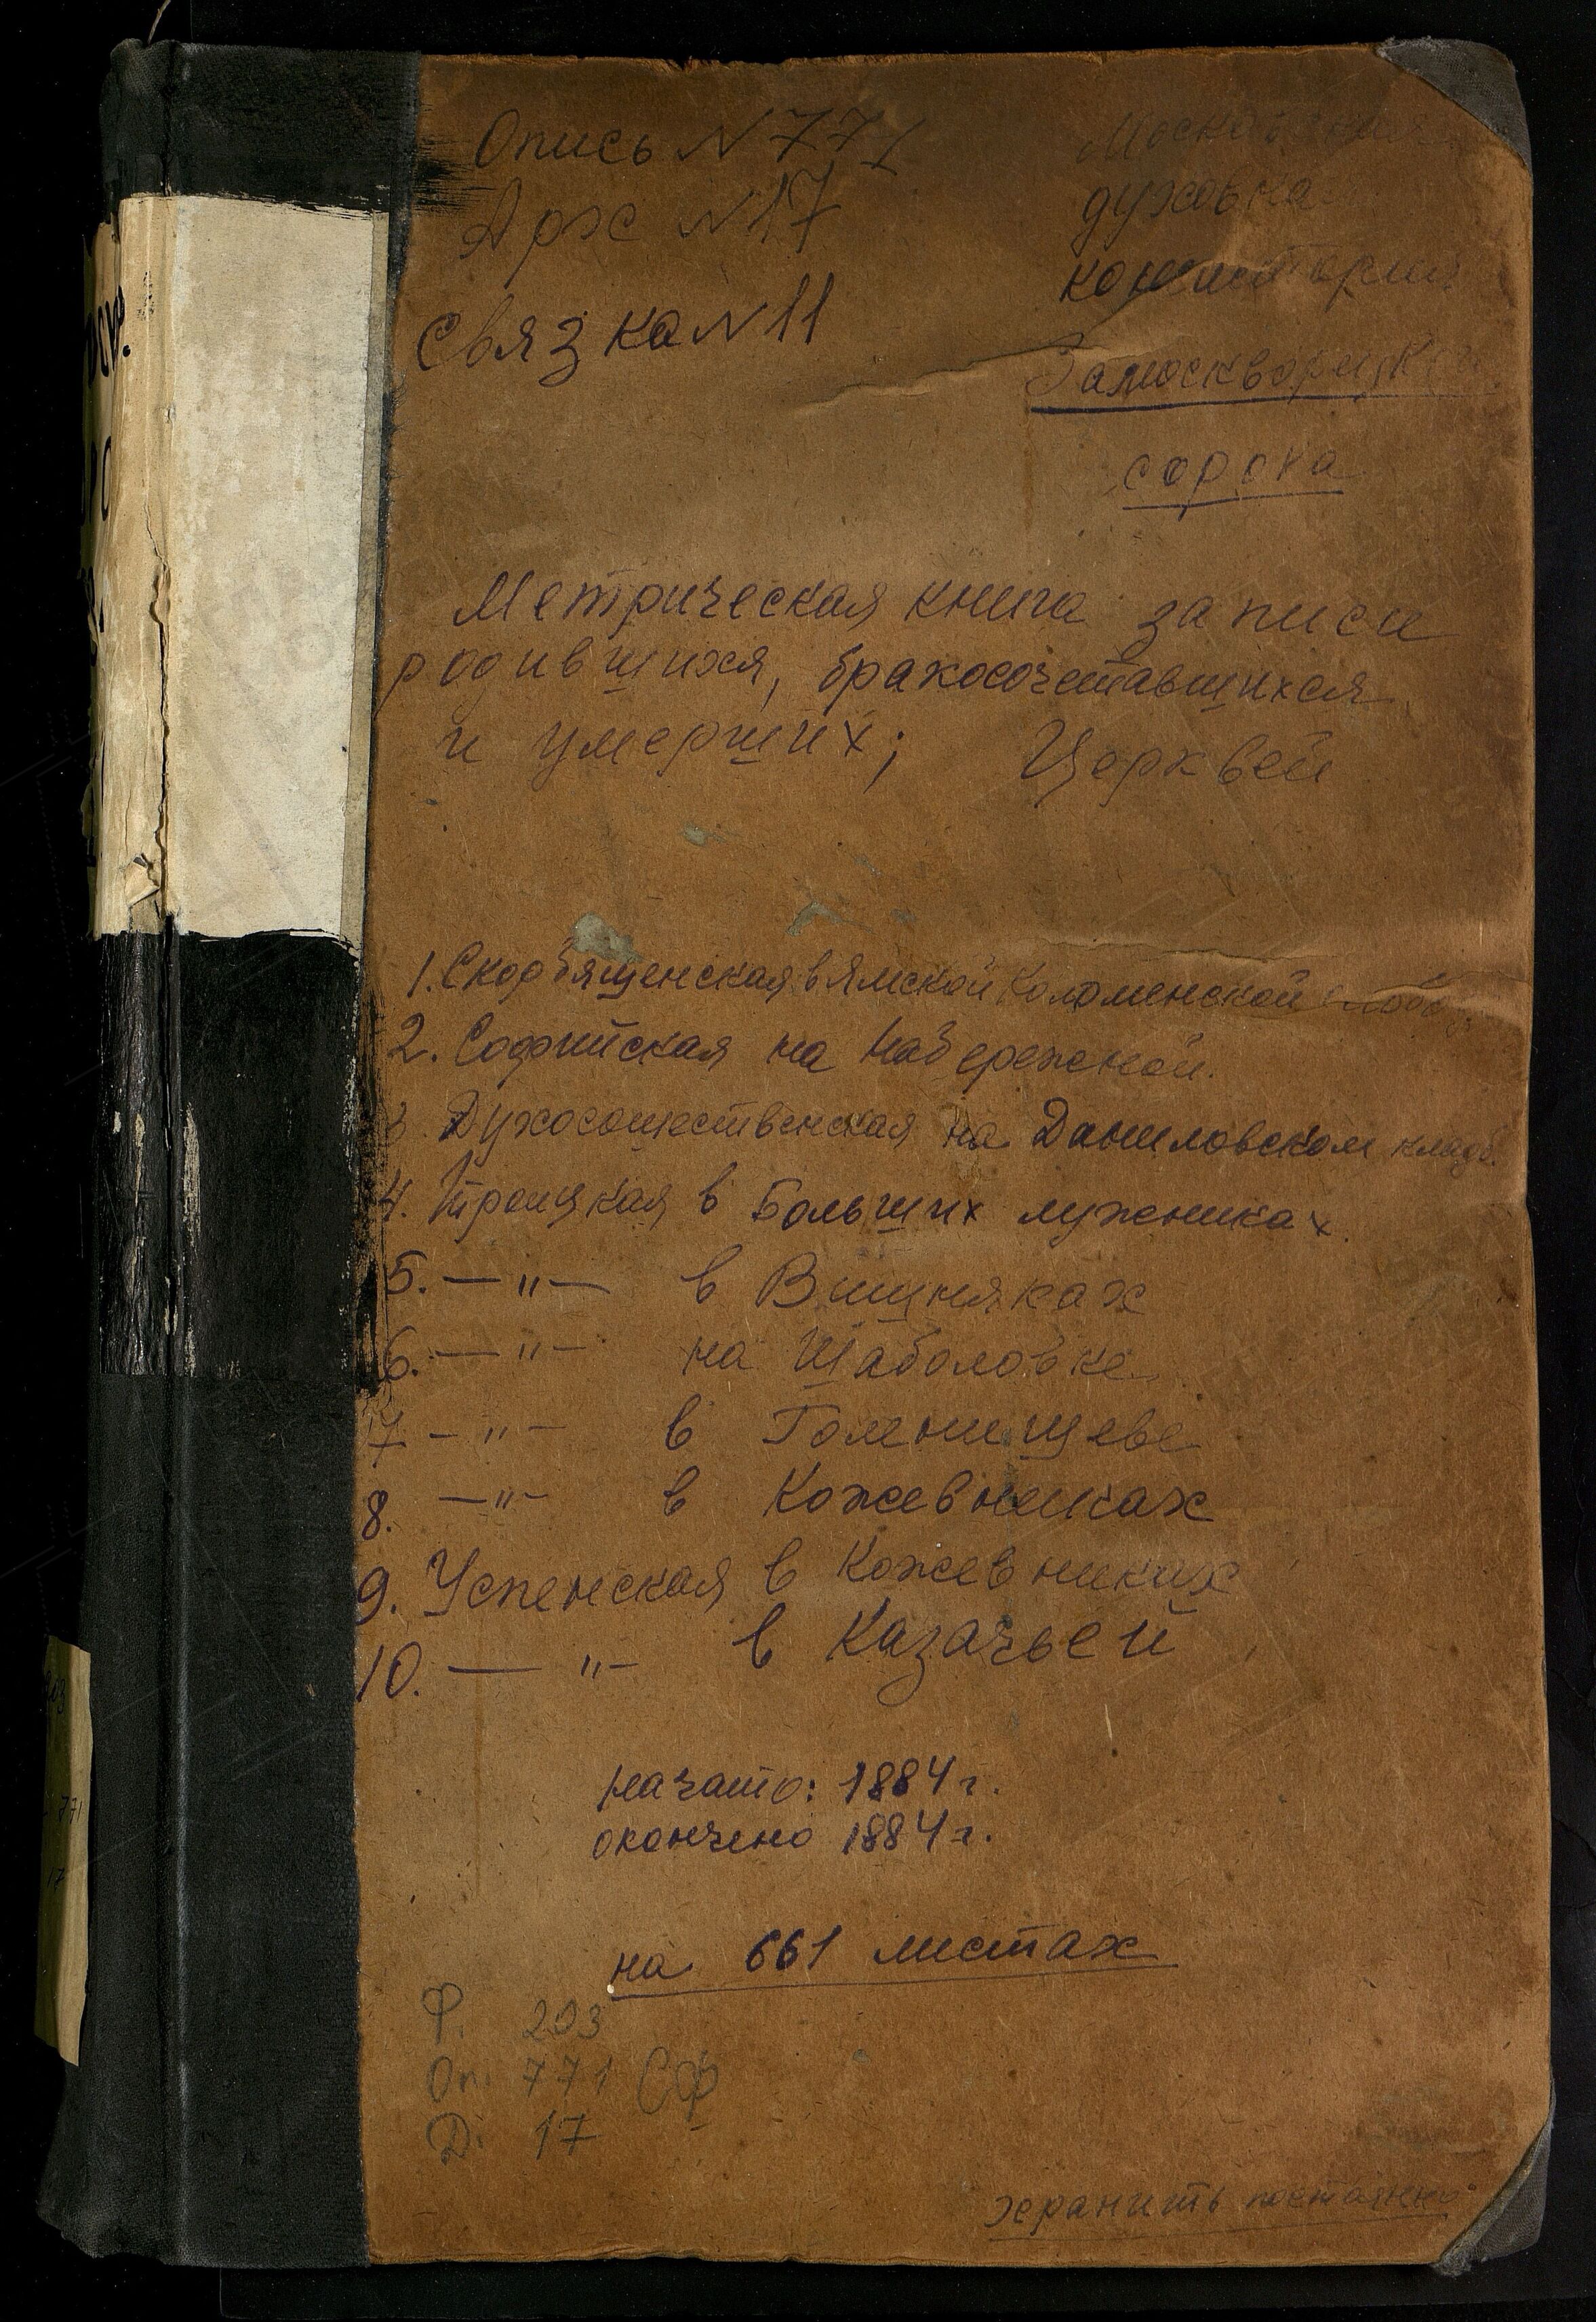 Опись N 771
Арх N 17
Связка N 11
Московская
духовная
консистория
Замоскворецкого
сорока
Метрическая книга записи
родившихся, бракосочетавшихся
и умерших; Церквей
1. Скорбященская в Ямской Коломенской слобод
2. Софийская на Набережной.
3. Духосошественская на Даниловском кладб.
4. Троицкая в Больших лужниках.
5. — " — в Вишняках
6. — " — на Шаболовке
7 — " — в Голенищеве
8. — " — в Кожевниках
9. Успенская в Кожевниках
10. — " — в Казачьей
начато: 1884 г.
окончено 1884 г.
на 661 листах
Ф. 203
Оп. 771 СФ
Д. 17
хранить постоянно
771
17